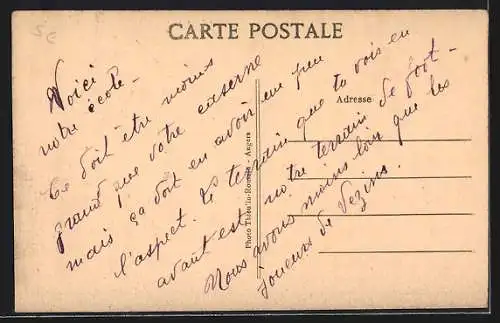 5€
CARTE POSTALE
Adresse
Photo - Angers
Voici
notre école.
Ce doit être moins
grand que votre caserne
mais ça doit en avoir un peu
l'aspect. Le terrain que tu vois en
avant est notre terrain de foot-
Nous avons moins loin que les
joueurs de Vezins.